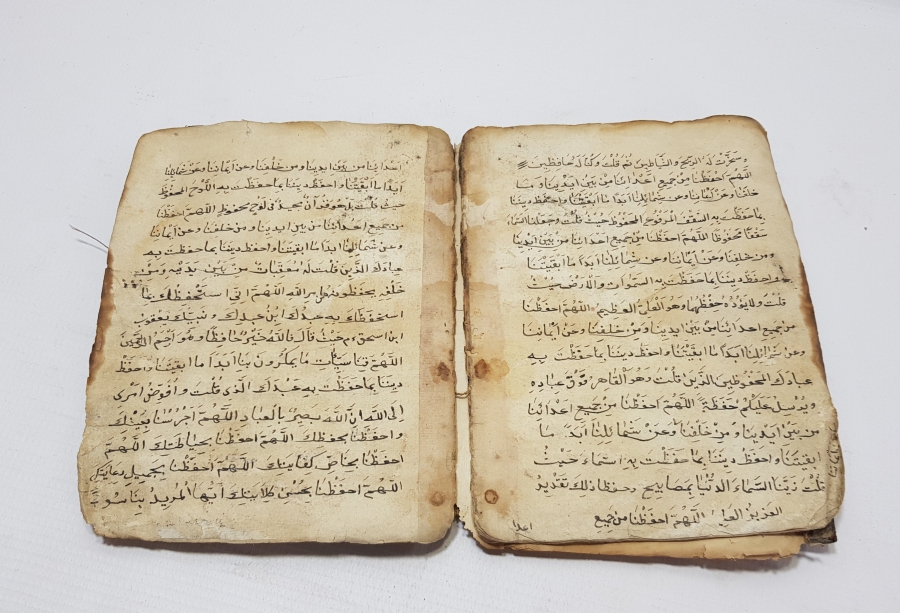 وسخرت له الريح والشياطين ثم قلت وكنا له حافظين
اللهم احفظنا من جميع اعدائنا من بين ايدينا ومن
خلفنا وعن ايماننا وعن شمائلنا ابدا ما ابقيتنا واحفظ ديننا
بما حفظت به السقف المرفوع المحفوظ حيث قلت وجعلنا السماء
سقفا محفوظا اللهم احفظنا من جميع اعدائنا من بين ايدينا
ومن خلفنا وعن ايماننا وعن شمائلنا ابدا ما ابقيتنا
واحفظ ديننا بما حفظت به السموات والارض حيث
قلت ولا يؤده حفظهما وهو العلي العظيم اللهم احفظنا
من جميع اعدائنا من بين ايدينا ومن خلفنا وعن ايماننا
وعن شمائلنا ابدا ما ابقيتنا واحفظ ديننا بما حفظت به
عبادك المحفوظين الذين قلت وهو القاهر فوق عباده
ويرسل عليكم حفظة اللهم احفظنا من جميع اعدائنا
من بين ايدينا ومن خلفنا وعن شمائلنا ابدا ما
ابقيتنا واحفظ ديننا بما حفظت به السماء حيث
قلت زينا السماء الدنيا بمصابيح وحفظا ذلك تقدير
العزيز العليم اللهم احفظنا من جميع
اعدا
اعدائنا من بين ايدينا ومن خلفنا وعن ايماننا وعن شمائلنا
ابدا ما ابقيتنا واحفظ ديننا بما حفظت به اللوح المحفوظ
حيث قلت بل هو قرآن مجيد في لوح محفوظ اللهم احفظنا
من جميع اعدائنا من بين ايدينا ومن خلفنا وعن ايماننا
وعن شمائلنا ابدا ما ابقيتنا واحفظ ديننا بما حفظت به
عبادك الذين قلت له معقبات من بين يديه ومن
خلفه يحفظونه من امر الله اللهم اني استحفظك بما
استحفظك به عبدك ابن عبدك ونبيك يعقوب
ابن اسحق حيث قال فالله خير حافظا وهو ارحم الراحمين
اللهم قنا سيئات ما يمكرون بنا ابدا ما ابقيتنا واحفظ
ديننا بما حفظت به عبدك الذي قلت وافوض امري
الى الله ان الله بصير بالعباد اللهم احرسنا بعينك
واحفظنا بحفظك اللهم احفظنا بحياطتك اللهم
احفظنا بخاص كفايتك اللهم احفظنا بجميل رعايتك
اللهم احفظنا بحسن كلايتك ايها المريد بنا سوء